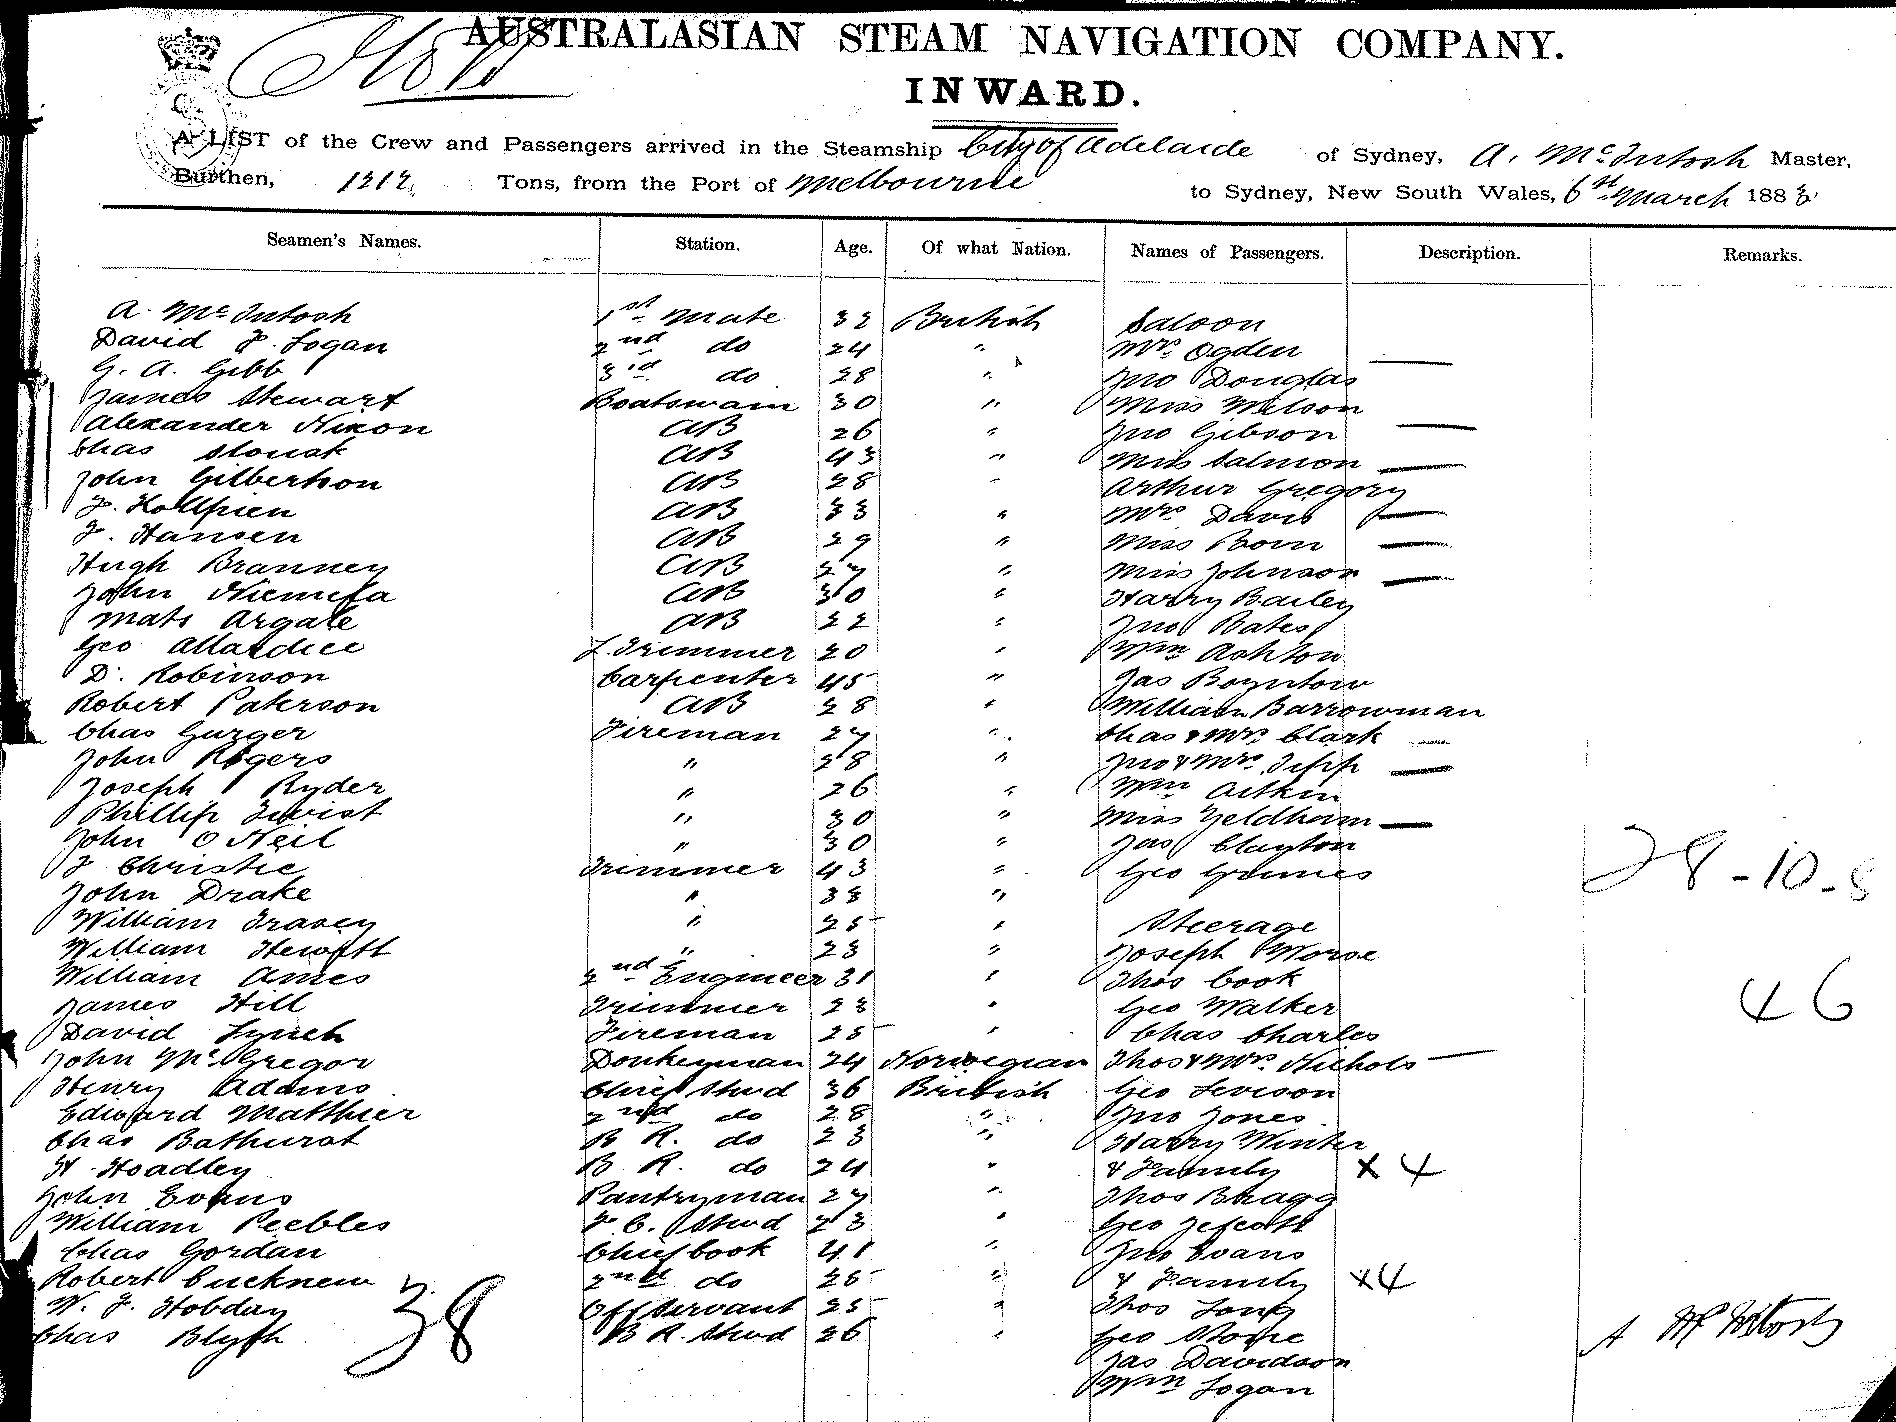 AUSTRALASIAN STEAM NAVIGATION COMPANY.
INWARD.
A LIST of the Crew and Passengers arrived in the Steamship City of Adelaide of Sydney, A. McIntosh Master,
Burthen, 1212 Tons, from the Port of Melbourne to Sydney, New South Wales, 6st March 1883
Seamen's Names. Station. Age. Of what Nation. Names of Passengers. Description. Remarks.
A. McIntosh 1st Mate 32 British Saloon
David F. Logan 2nd do 24 " Mrs Ogden —
G. A. Gibb 3rd do 28 " Jno Douglas
James Stewart Boatswain 30 " Miss Wilson
Alexander Nixon AB 26 " Jno Gibson —
Chas AB 43 " Miss Salmon —
John Gilbertson AB 28 " Arthur Gregory
AB 33 " Mrs Davis —
J. Hansen AB 29 " Miss Born —
Hugh Branney AB 27 " Miss Johnson —
John Niemela AB 30 " Harry Bailey
Mats Argale AB 22 " Jno Bates
Geo Allardice L. Trimmer 20 " Wm Ashton
D. Robinson Carpenter 45 " Jas Boyntow
Robert Paterson AB 28 " William Barrowman
Chas Gurger Fireman 27 " Chas & Mrs Clark —
John Rogers " 28 " Jno & Mrs Tipp —
Joseph Ryder " 26 " Wm Aitkin
Phillip Twist " 30 " Miss Yeldham —
John O Neil " 30 " Jas Clayton
J Christie Trimmer 43 " Geo Grimes
John Drake " 38 "
William Travey " 25 " Steerage
William " 23 " Joseph Morse
William Ames 2nd Engineer 31 " Thos Cook
James Hill Trimmer 23 " Geo Walker
David Lynch Fireman 25 " Chas Charles
John McGregor Donkeyman 24 Norwegian Thos & Mrs Nichols —
Henry Adams Chief Stwd 36 British Geo Levison
Edward Matthier 2nd do 28 " Jno Jones
Chas Bathurst B R. do 23 " Harry Winter
H. Hoadley B. R. do 24 " & Family x 4
John Evans Pantryman 27 " Thos Bragg
William Peebles F. C. Stwd 23 " Geo
Chas Gordan Chief Cook 41 " Jno Evans
Robert 2nd do 25 " & Family x 4
W. J. Hobday Off Servant 25 " Thos Long
Chas Blyth B R. Stwd 26 " Geo Stone
Jas Davidson
Wm Logan
38
28-10-8
46
A McIntosh